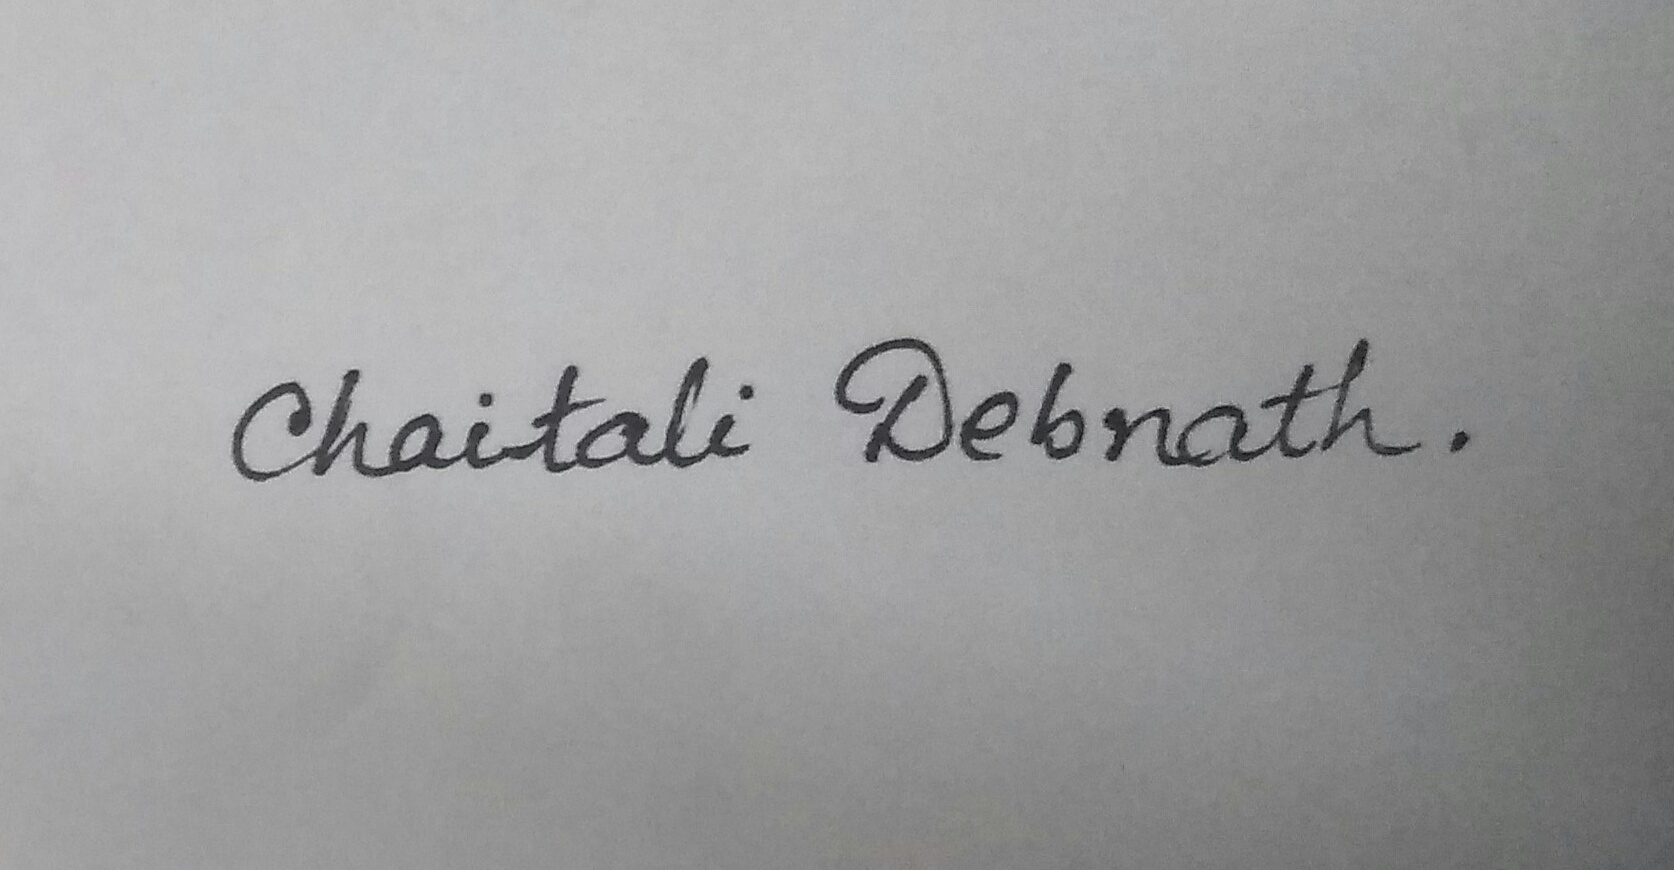 Chaitali Debnath.